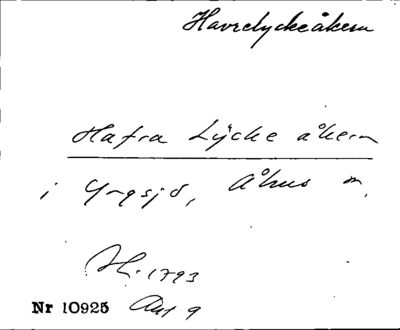 Havrelyckeåkern
Hafra Lÿcke åkern
i Yngsjö, Åhus
1793
Nr 10925 Akt 9